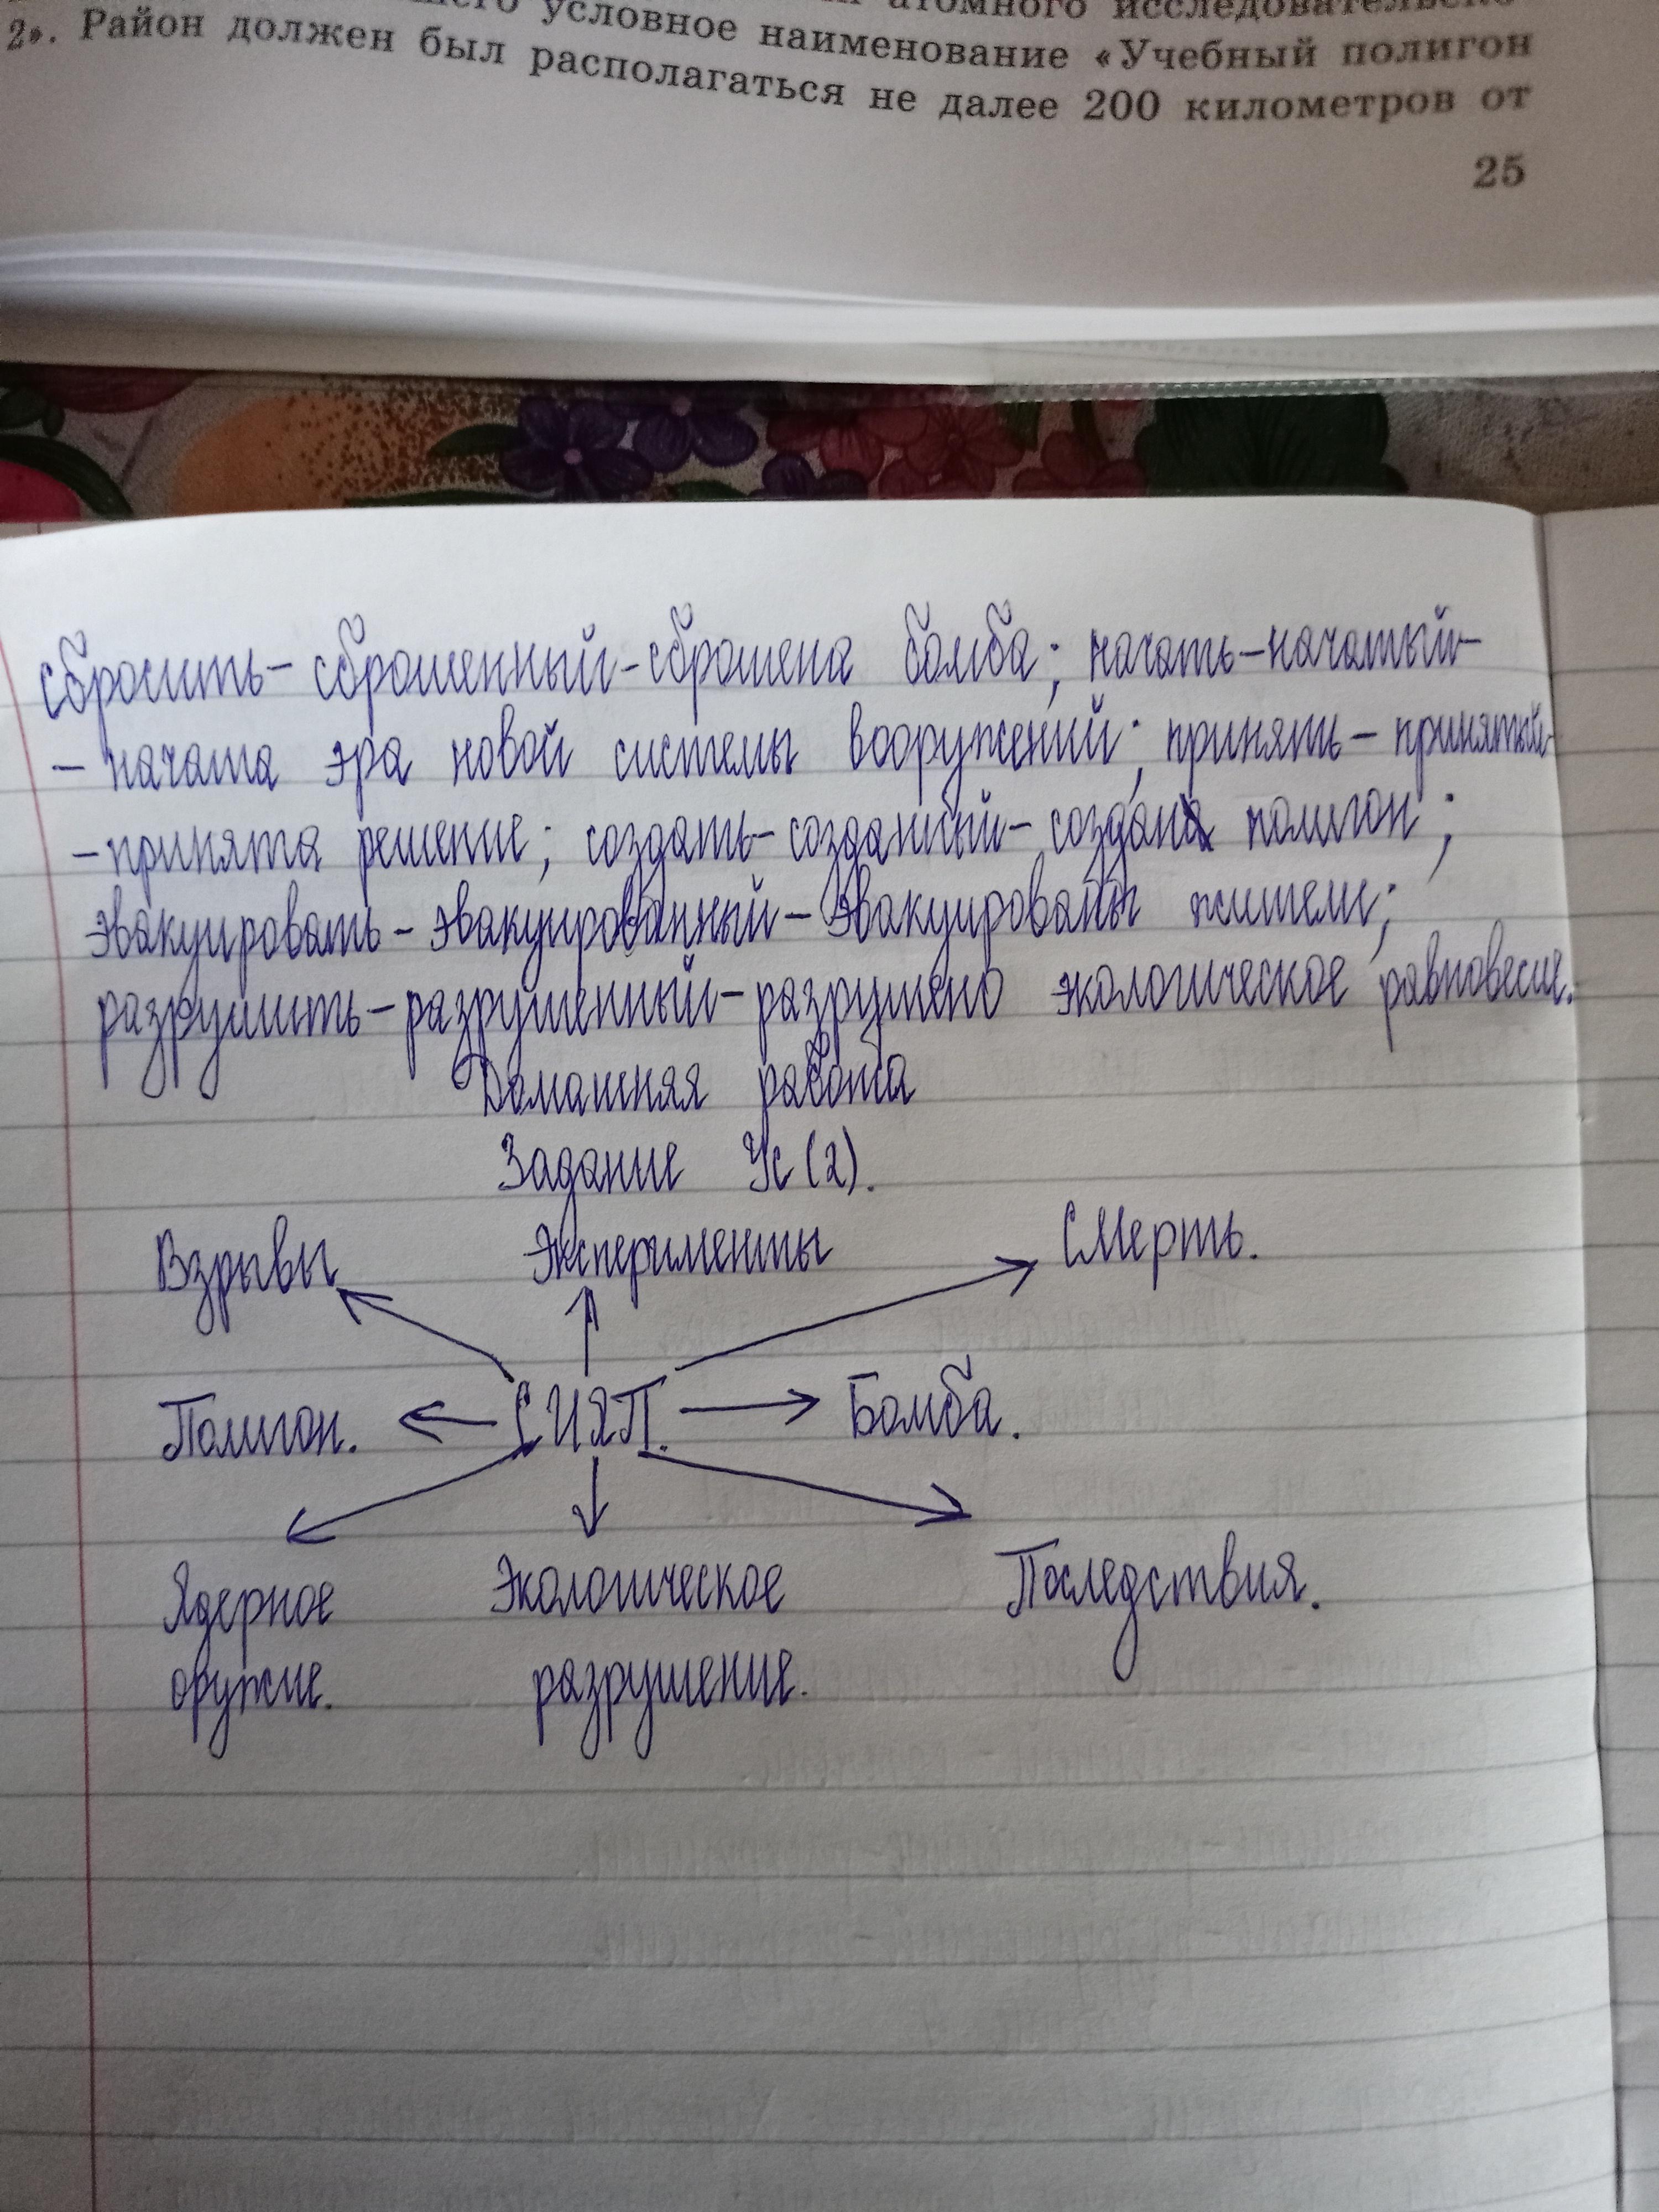 условное наименование «Учебный полигон
2». Район должен был располагаться не далее 200 километров от
25
сбросить- сброшенный-сброшена бомба; начать-начатый-
- начата эра новой системы вооружений; принять- принятый-
-принята решение; создать-созданный-создан полигон;
эвакуировать-эвакуированный-эвакуированы жители;
разрушить-разрушенный-разрушено экологическое равновесие.
Домашняя работа
Задание Ус(2).
Взрывы Эксперименты Смерть.
Полигон. СИЯП. Бомба.
Ядерное Экологическое Последствия.
оружие. разрушение.